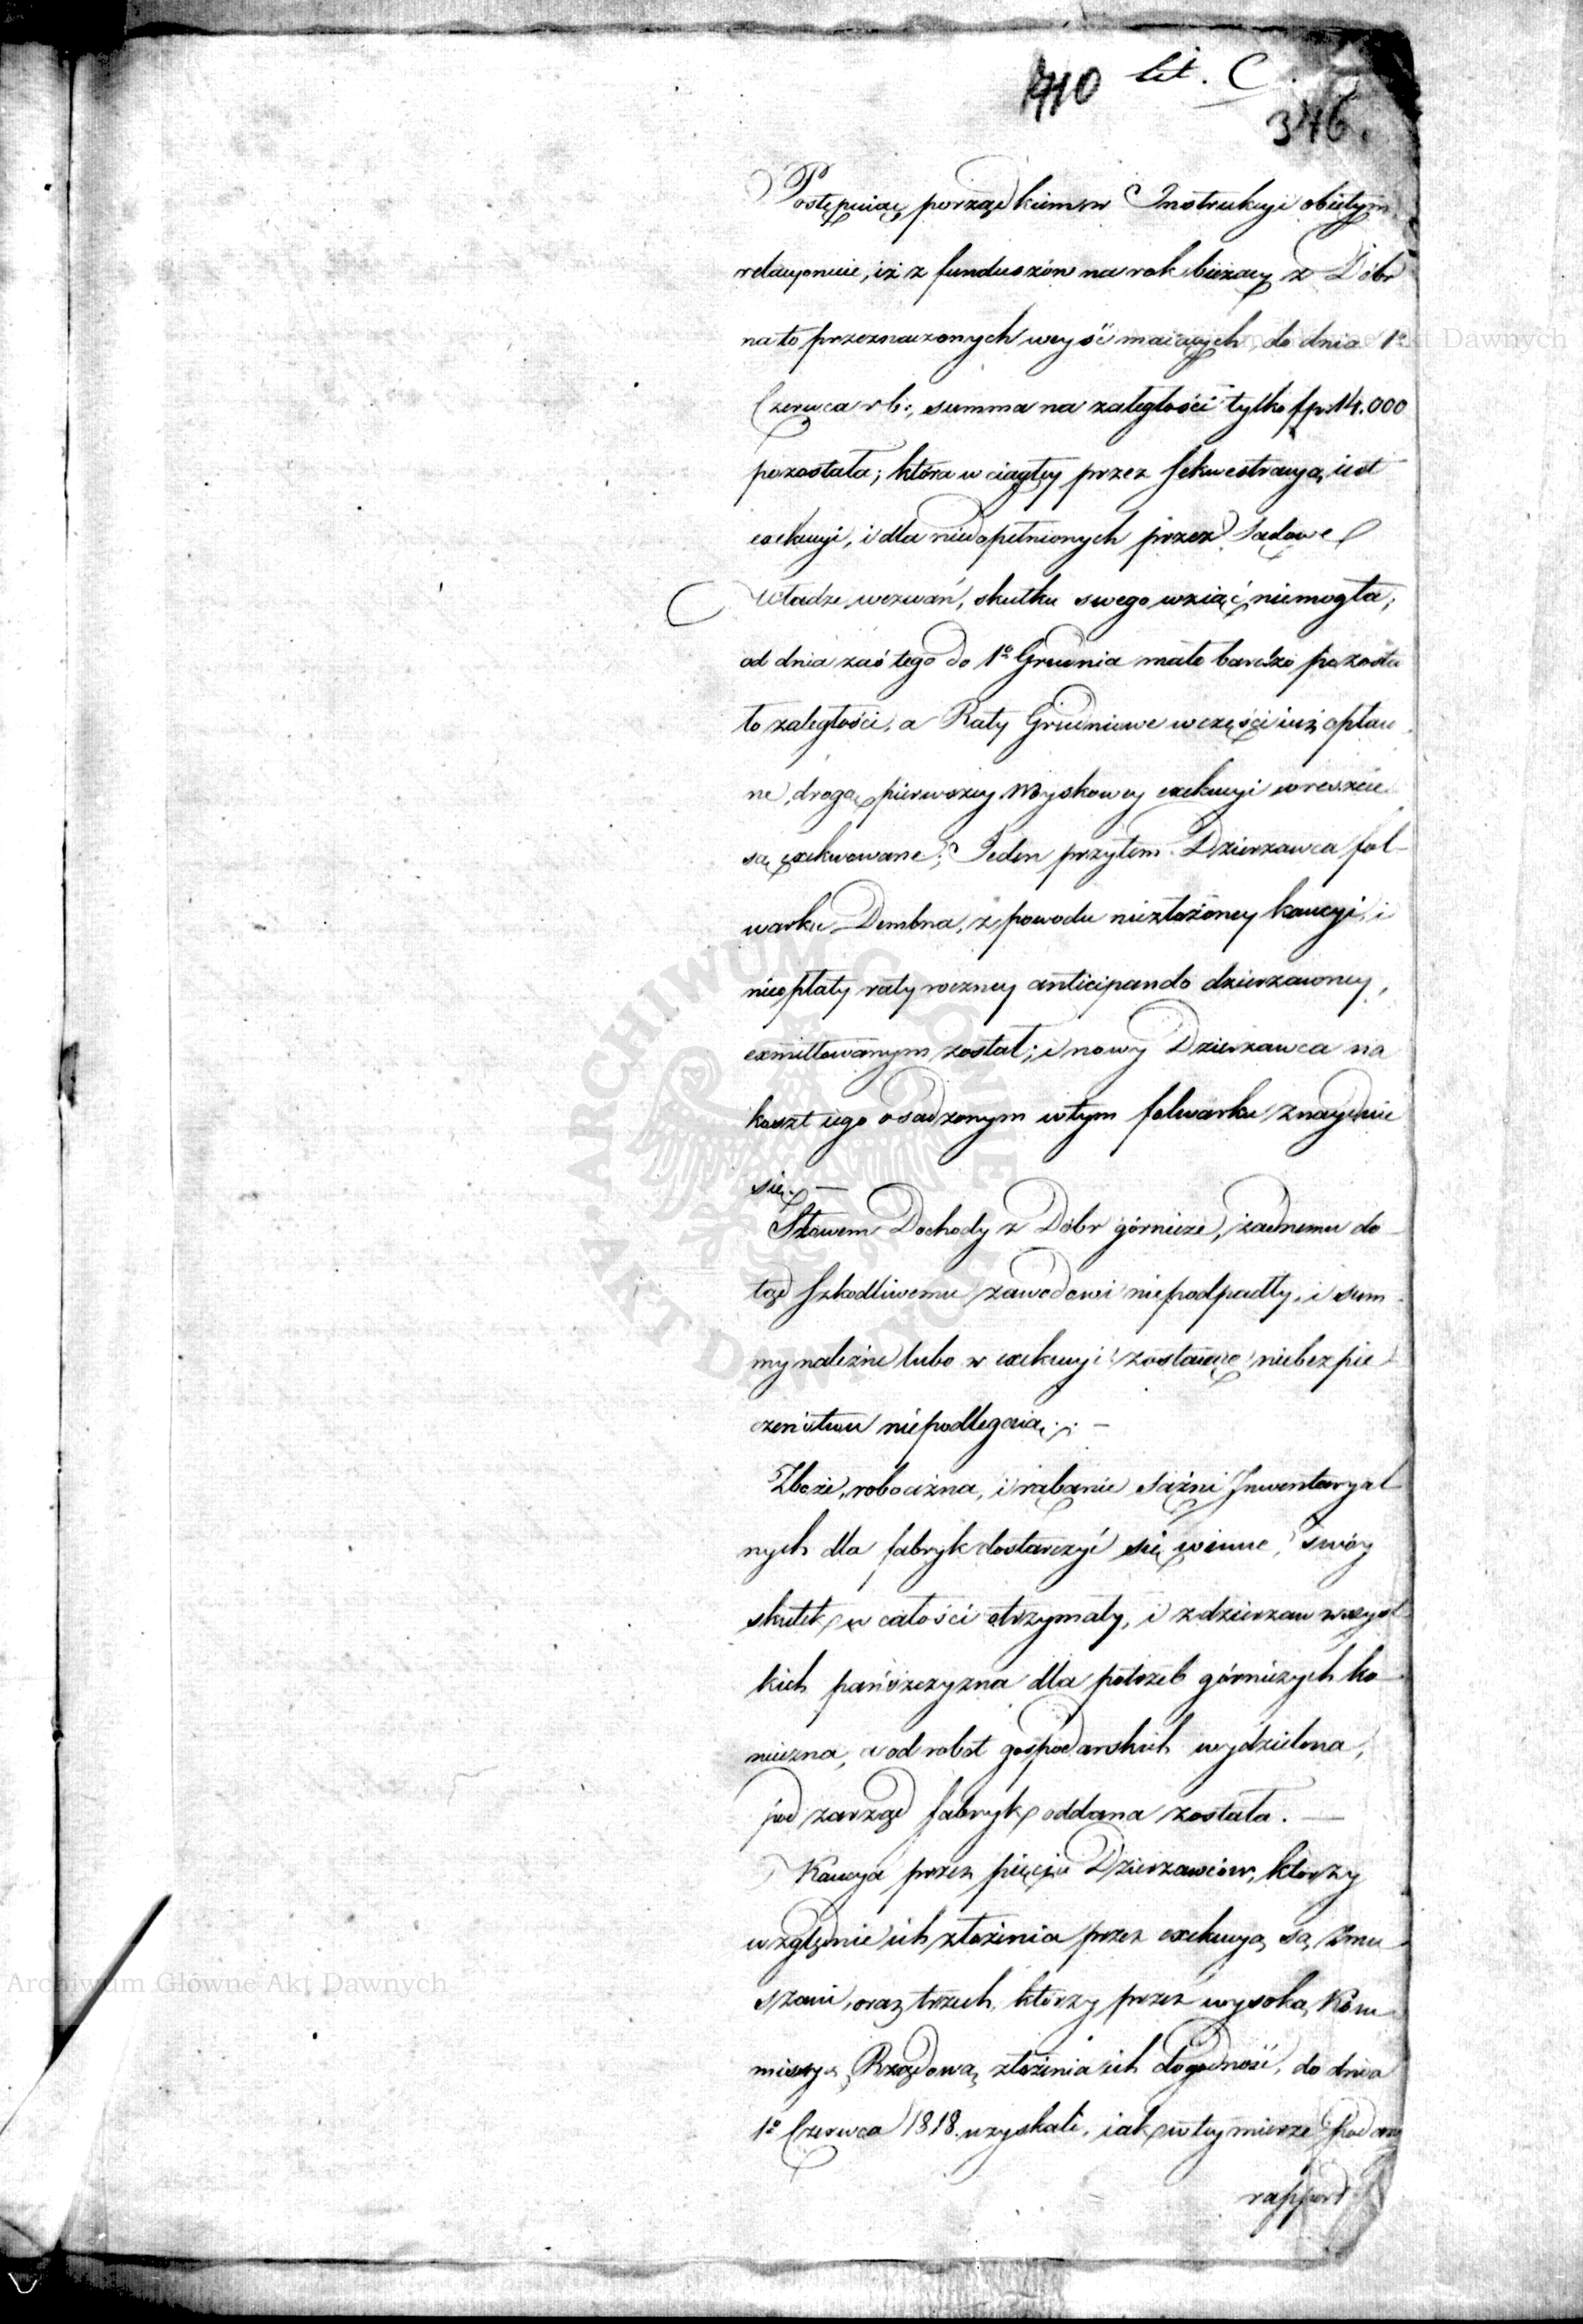 710 lit. C.
346.
Postępuiąc porządkiem w Instrukcyi obiętym
relacyonuie, iż z funduszów na rok bieżący z Dóbr
na to przeznaczonych weyść maiących, do dnia 1º
Czerwca r b:, summa na zaległości tylko fp. 14.000
pozostała; która w ciągłey przez Sekwestracyą iest
exekucyi, i dla niedopełnionych przez Sądowe
Władze wezwań, skutku swego wziąć niemogła;
od dnia zaś tego do 1º Grudnia mało bardzo pozosta
ło zaległości, a Raty Grudniowe w części iuż opłaco
ne, drogą pierwszey Woyskowey exekucyi wreszcie
są exekwowane; Jeden przytem Dzierzawca fol-
warku Dembna, z powodu niezłożoney kaucyi, i
nieopłaty raty roczney anticipando dzierzawney,
exmittowanym został; i nowy Dzierzawca na
koszt iego osadzonym w tym folwarku znayduie
się. —
Słowem Dochody z Dóbr górnicze, żadnemu do-
tąd Szkodliwemu zawodowi niepodpadły, i sum-
my należne lubo w exekucyi zostaiące niebezpie
czeństwu niepodlegaią. —
Zboże, robocizna, i rąbanie sążni Inwentaryal
nych dla fabryk dostarczyć się winne, swóy
skutek w całości otrzymały, i z dzierzaw wszyst
kich pańszczyzna dla potrzeb górniczych ko-
nieczna, a od robot gospodarskich wydzielona,
pod zarząd fabryk oddana została. —
Kaucya przez pięciu Dzierzawców, którzy
względnie ich złożenia przez exekucyą są zmu-
szani, oraz trzech, którzy przez wysoką Kom-
missyą Rządową złożenia ich dogodność, do dnia
1º Czerwca 1818. uzyskali, iak w tey mierze podany
rapport
Archiwum Główne Akt Dawnych
Archiwum Główne Akt Dawnych
ARCHIWUM GŁÓWNE AKT DAWNYCH